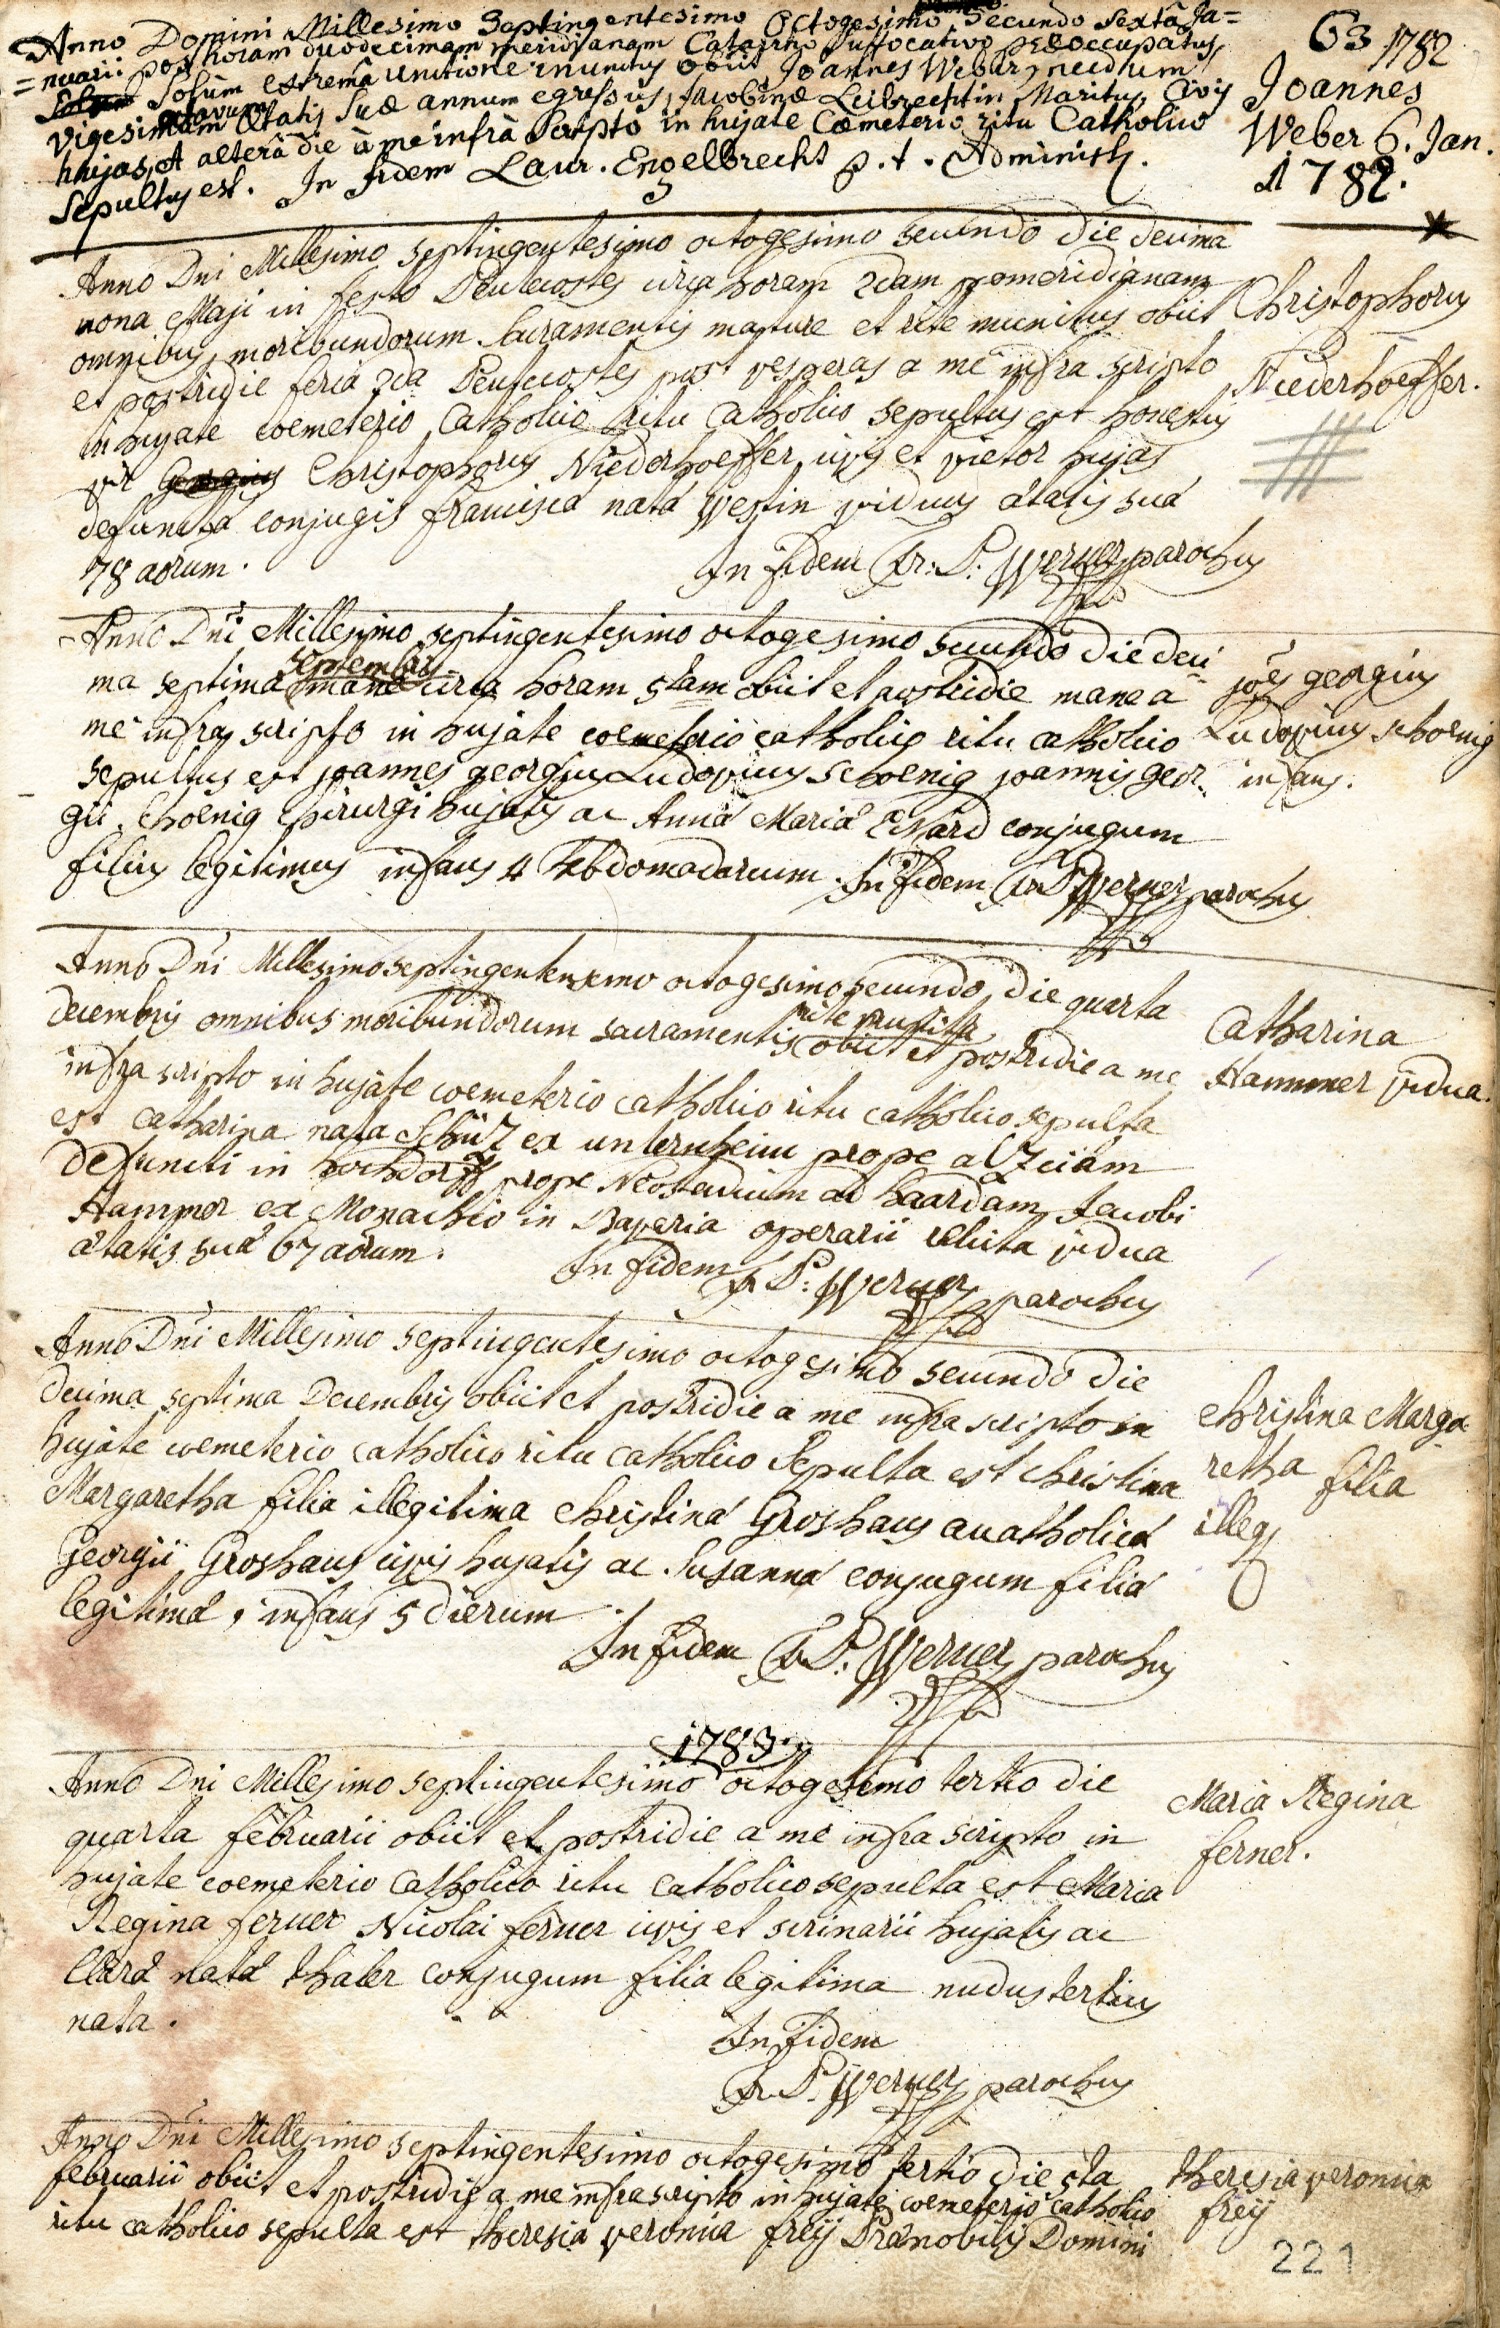 63 1782
Anno Domini Millesimo Septingentesimo Octogesimo Secundo Sextâ Ja=
=nuarii post horam duodecimam meridianam Catarrho Suffocativo præoccupatus
Solùm extremâ unctione munitus obiit Joannes Weber, necdum
vigesimum octavum Ætatis Suæ annum egressus, Jacobinæ Leibrechtin Maritus, Civis
hujas, et alterâ die à me infrà Scripto in hujate Cœmeterio ritu Catholico
Sepultus est. In fidem Laur. Engelbrecht p. t. Administr.
Joannes
Weber 6. Jan.
1782.
Anno Dni Millesimo septingentesimo octogesimo secundo die decima
nona Maji in festo Pentecostes circa horam 2dam pomeridianam
omnibus moribundorum sacramentis mature et rite munitus obiit
et postridie feria 2da Pentecostes post vesperas a me infra scripto
in hujate coemeterio Catholico ritu Catholico sepultus est honestus
vir Georgius Christophorus Niederhoeffer civis et vietor hujas
defunctæ conjugis franciscæ natæ Westin viduus ætatis suæ
78 aorum.
In fidem Fr: P: Werner parochus
Christophorus
Niederhoeffer.
Anno Dni Millesimo septingentesimo octogesimo secundo die deci-
ma septima septembris mane circa horam 5tam obiit et postridie mane a
me infra scripto in hujate coemeterio catholico ritu catholico
sepultus est joannes georgius Ludovicus Schoenig joannis geor-
gii Schoenig chirurgi hujatis ac Annæ Mariæ conjugum
filius legitimus infans 4 hebdomadarum. In fidem Fr P Werner parochus
joes georgius
Ludovicus schoenig
infans.
Anno Dni Millesimo septingentesimo octogesimo secundo die quarta
Decembris omnibus moribundorum sacramentis rite munita obiit et postridie a me
infra scripto in hujate coemeterio catholico ritu catholico sepulta
est Catharina nata Schüz ex unternheim prope alzeiam
defuncti in hochdorff prope Neostadium ad haardam Jacobi
Hammer ex Monachio in Bavaria operarii relicta vidua
ætatis suæ 67 aorum.
In fidem Fr P: Werner parochus
Catharina
Hammer vidua.
Anno Dni Millesimo septingentesimo octogesimo secundo die
decima septima Decembris obiit et postridie a me infra scripto in
hujate coemeterio catholico ritu catholico sepulta est Christina
Margaretha filia illegitima Christinæ Groshaus acatholicæ
Georgii Groshaus civis hujatis ac Susannæ conjugum filiæ
legitimæ, infans 5 dierum
In fidem Fr P: Werner parochus
Christina Marga
retha filia
illeg
1783.
Anno Dni Millesimo septingentesimo octogesimo tertio die
quarta februarii obiit et postridie a me infra scripto in
hujate coemeterio catholico ritu catholico sepulta est Maria
Regina ferner Nicolai ferner civis et scrinarii hujatis ac
Claræ natæ thaler conjugum filia legitima nudustertius
nata.
In fidem
Fr. P. Werner parochus
Maria Regina
ferner.
Anno Dni Millesimo septingentesimo octogesimo tertio die 5ta
februarii obiit et postridie a me infrascripto in hujate coemeterio catholico
ritu catholico sepulta est theresia veronica freij Prænobilis Domini
theresia veronica
freij
221